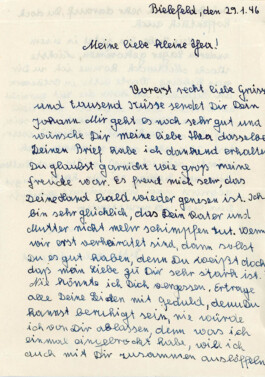 Bielefeld, den 29.1.46
Meine liebe kleine Thea!
Vorerst recht liebe Grüsse
und tausend Küsse sendet Dir Dein
Johann Mir geht es noch sehr gut und
wünsche Dir meine liebe Thea dasselbe
Deinen Brief habe ich dankend erhalten
Du glaubst garnicht wie groß meine
Freude war. Es freud mich sehr, das
Deine Hand bald wieder genesen ist. Ich
bin sehr glücklich, das Dein Vater und
Mutter nicht mehr schimpfen tut. Wenn
wir erst verheiratet sind, dann sollst
du es gut haben, denn Du weißt doch
daß mein Liebe zu Dir sehr stark ist.
Nie könnte ich Dich vergessen, Ertrage
alle Deine Leiden mit geduld, denn du
kannst beruhigt sein, nie würde
ich von Dir ablassen, denn was ich
einmal eingebrockt habe, will ich
auch mit Dir zusammen auslöffeln